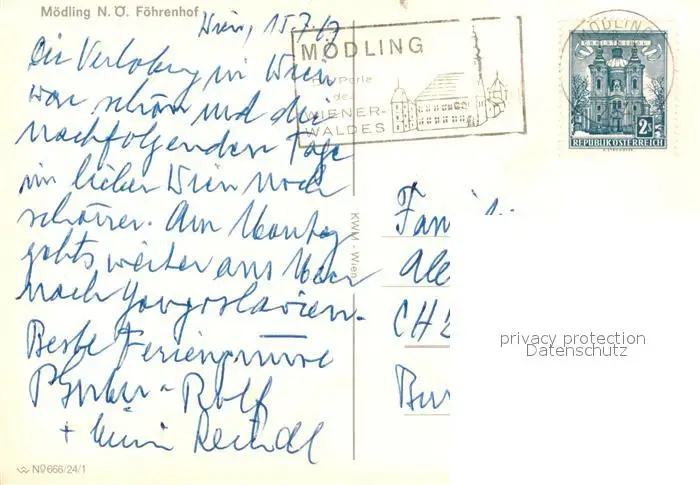 Mödling N. Ö. Föhrenhof
Wien, 15.7.67
MÖDLING
Die Perle
des
WIENER-
WALDES
MÖDLING
CHRISTKINDL
2S
REPUBLIK ÖSTERREICH
Die Verlobung in Wien
war schön und die
nachfolgenden Tage
im lieben Wien noch
schöner. Am Montag
gehts weiter ans Meer
nach Yougoslavien.
Beste Feriengrüsse
Rolf
+
KWM - Wien
Fam
CH
privacy protection
Datenschutz
Nº 666/24/1